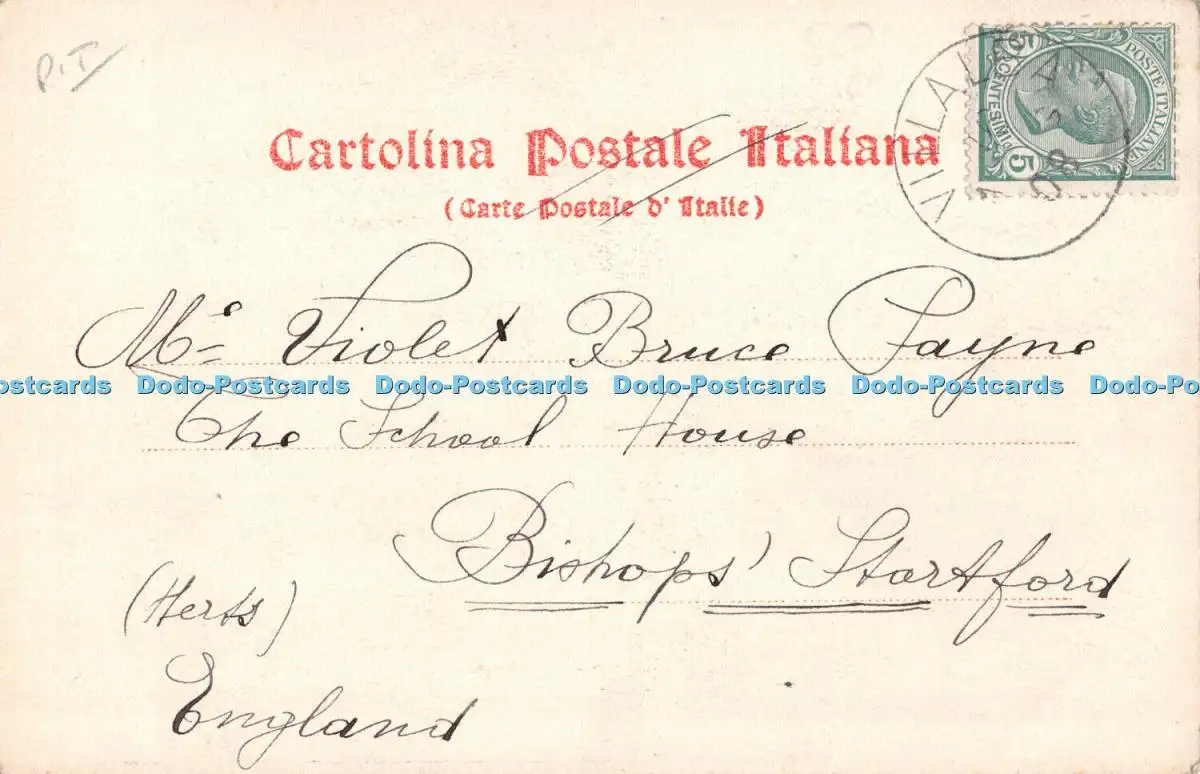 P.I
Cartolina Postale Italiana
(Carte Postale d'Italie)
POSTE ITALIANE
CENTESIMI
5 5
08
Me Violet Bruce Payne
Dodo-Postcards Dodo-Postcards Dodo-Postcards Dodo-Postcards Dodo-Postcards
The School House
Bishops' Startford
(Herts)
England